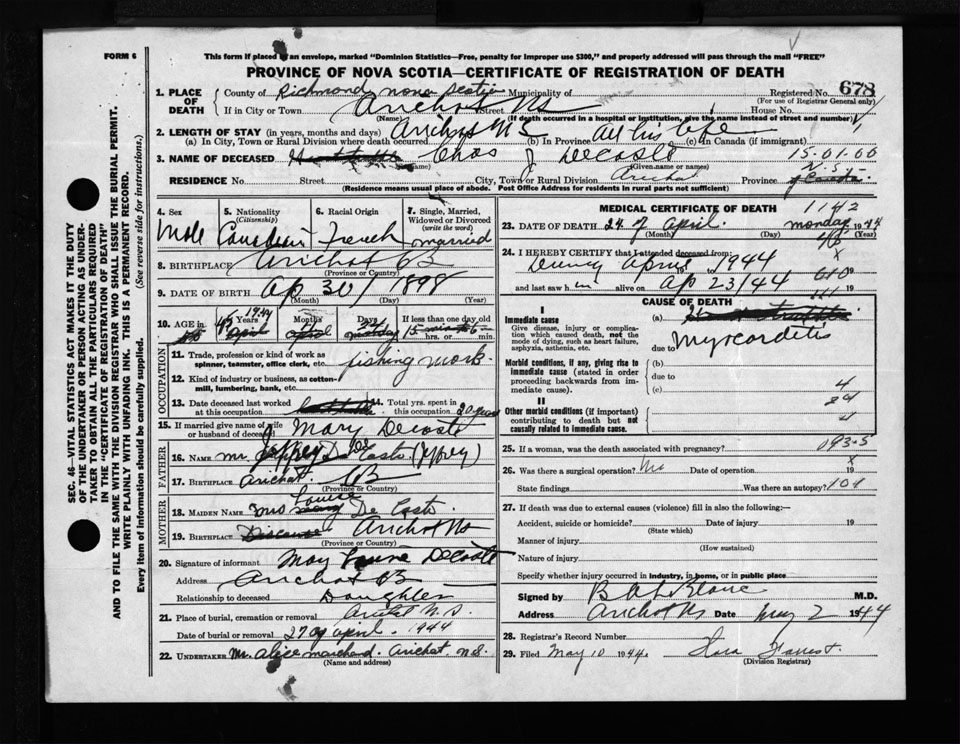 FORM 6
This form if placed in an envelope, marked "Dominion Statistics—Free, penalty for improper use $300," and properly addressed will pass through the mail "FREE"
PROVINCE OF NOVA SCOTIA—CERTIFICATE OF REGISTRATION OF DEATH
SEC. 46—VITAL STATISTICS ACT MAKES IT THE DUTY
OF THE UNDERTAKER OR PERSON ACTING AS UNDER-
TAKER TO OBTAIN ALL THE PARTICULARS REQUIRED
IN THE "CERTIFICATE OF REGISTRATION OF DEATH"
AND TO FILE THE SAME WITH THE DIVISION REGISTRAR WHO SHALL ISSUE THE BURIAL PERMIT.
WRITE PLAINLY WITH UNFADING INK. THIS IS A PERMANENT RECORD.
Every item of information should be carefully supplied. (See reverse side for instructions.)
1. PLACE OF DEATH County of Richmond nova Scotia Municipality of Registered No. 678
(For use of Registrar General only)
If in City or Town Arichat NS Street House No.
(Name) (If death occurred in a hospital or institution, give name instead of street and number)
2. LENGTH OF STAY (in years, months and days) Arichat NS All his life
(a) In City, Town or Rural Division where death occurred (b) In Province (c) In Canada (if immigrant)
3. NAME OF DECEASED Chas J Decoste 15.01.00
(Surname) (Given name or names)
RESIDENCE No. Street City, Town or Rural Division Arichat Province N.S.
(Residence means usual place of abode. Post Office Address for residents in rural parts not sufficient)
4. Sex Male
5. Nationality (Citizenship) Canadian
6. Racial Origin French
7. Single, Married, Widowed or Divorced (write the word) married
8. BIRTHPLACE Arichat CB
(Province or County)
9. DATE OF BIRTH Ap 30/ 1898
(Month) (Day) (Year)
10. AGE in Years Months Days If less than one day old
hrs. or min.
OCCUPATION
11. Trade, profession or kind of work as spinner, teamster, office clerk, etc. fishing work
12. Kind of industry or business, as cotton-mill, lumbering, bank, etc.
13. Date deceased last worked at this occupation
14. Total yrs. spent in this occupation 20 years
15. If married give name of wife or husband of deceased Mary Decoste
FATHER
16. NAME Mr. Jeffrey De Coste (Jeffrey)
17. BIRTHPLACE Arichat CB
(Province or County)
MOTHER
18. MAIDEN NAME Mrs Louise De Coste
19. BIRTHPLACE Arichat NS
(Province or County)
20. Signature of informant May Decoste
Address Arichat CB
Relationship to deceased Daughter
21. Place of burial, cremation or removal Arichat N.S.
Date of burial or removal 27 of April. 1944
22. UNDERTAKER Mr. Alice Marchand. Arichat N.S.
(Name and address)
MEDICAL CERTIFICATE OF DEATH 1142
23. DATE OF DEATH 24 of April. monday 1944
(Month) (Day) (Year)
24. I HEREBY CERTIFY that I attended deceased from:
During April 1944
and last saw him alive on Ap 23/44 19
CAUSE OF DEATH
I
Immediate cause (a)
Give disease, injury or complication which caused death, not the mode of dying, such as heart failure, asphyxia, asthenia, etc.
due to Myocarditis
Morbid conditions, if any, giving rise to immediate cause (stated in order proceeding backwards from immediate cause). (b)
due to
(c)
II
Other morbid conditions (if important) contributing to death but not causally related to immediate cause.
25. If a woman, was the death associated with pregnancy? 093-5
26. Was there a surgical operation? No Date of operation 19
State findings Was there an autopsy? 101
27. If death was due to external causes (violence) fill in also the following:—
Accident, suicide or homicide? Date of injury 19
(State which)
Manner of injury
(How sustained)
Nature of injury
Specify whether injury occurred in industry, in home, or in public place
Signed by B A LeBlanc M.D.
Address Arichat NS Date May 2 1944
28. Registrar's Record Number
29. Filed May 10 1944. Forrest
(Division Registrar)